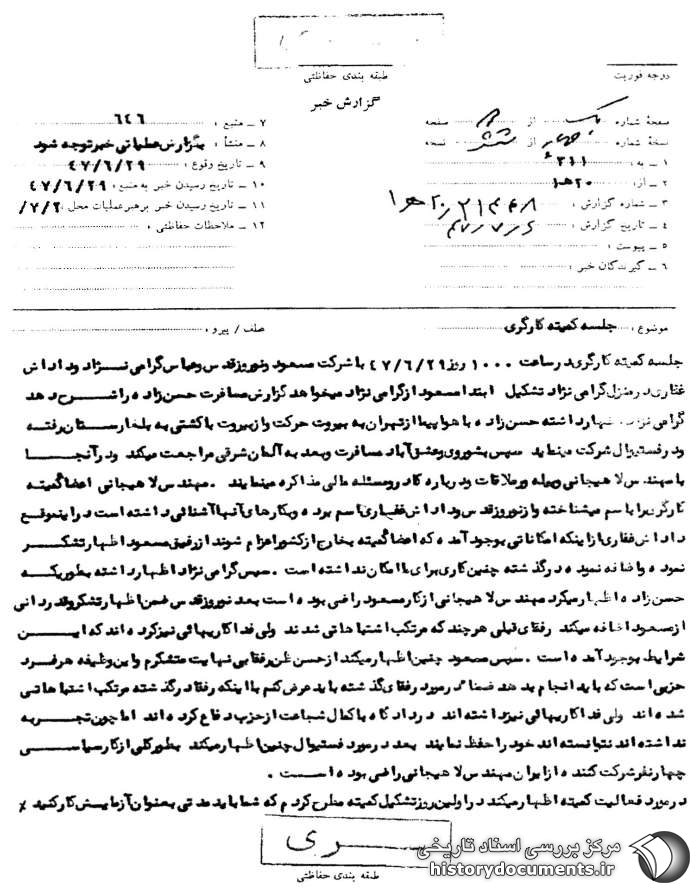 طبقه بندی حفاظتی
درجه فوریت
گزارش خبر
صفحه شماره یک از صفحه
نسخه شماره چهار از شش نسخه
۱ ـ به : ۳۱۱
۲ ـ از : ۲۰ ه‍ ۱
۳ ـ شماره گزارش : ۲۱۴۴۸ / ۲۰ ه‍ ۱
۴ ـ تاریخ گزارش : ۴۷/۷/۶
۵ ـ پیوست :
۶ ـ گیرندگان خبر :
۷ ـ منبع : ۶۴۶
۸ ـ منشأ : بگزارش عملیاتی خبر توجه شود
۹ ـ تاریخ وقوع : ۴۷/۶/۲۹
۱۰ ـ تاریخ رسیدن خبر به منبع : ۴۷/۶/۲۹
۱۱ ـ تاریخ رسیدن خبر برهبر عملیات محل : ۷/۲/
۱۲ ـ ملاحظات حفاظتی :
موضوع : جلسه کمیته کارگری
عطف / پیرو :
جلسه کمیته کارگری در ساعت ۱۰۰۰ روز ۴۷/۶/۲۹ با شرکت مسعود و نوروز قدس و عباس گرامی نژاد و داداش
غفاری در منزل گرامی نژاد تشکیل ابتدا مسعود از گرامی نژاد میخواهد گزارش مسافرت حسن زاده را شرح دهد
گرامی نژاد اظهار داشته حسن زاده با هواپیما از تهران به بیروت حرکت و از بیروت با کشتی به بلغارستان رفته
و در فستیوال شرکت مینماید سپس بشوروی و عشق آباد مسافرت و بعد به آلمان شرقی مراجعت میکند و در آنجا
با مهندس لاهیجانی و بیله ور ملاقات و درباره کادر و مسئله مالی مذاکره مینمایند . مهندس لاهیجانی اعضا کمیته
کارگری را با اسم میشناخته و از نوروز قدس و داداش غفاری اسم برده و بکارهای آنها آشنائی داشته است در اینموقع
داداش غفاری از اینکه امکاناتی بوجود آمده که اعضا کمیته بخارج از کشور اعزام شوند از رفیق مسعود اظهار تشکر
نموده و اضافه نموده در گذشته چنین کاری برای ما امکان نداشته است . سپس گرامی نژاد اظهار داشته بطوریکه
حسن زاده اظهار میکرد مهندس لاهیجانی از کار مسعود راضی بوده است بعد نوروز قدس ضمن اظهار تشکر و قدردانی
از مسعود اضافه میکند رفقای قبلی هر چند که مرتکب اشتباهاتی شدند ولی فداکاریهائی نیز کرده اند که این
شرایط بوجود آمده است . سپس مسعود چنین اظهار میکند از حسن ظن رفقا بی نهایت متشکرم و این وظیفه هر فرد
حزبی است که باید انجام بدهد ضمنا در مورد رفقای گذشته باید عرض کنم با اینکه رفقا در گذشته مرتکب اشتباهاتی
شده اند ولی فداکاریهائی نیز داشته اند و در دادگاه با کمال شجاعت از حزب دفاع کرده اند اما چون تجربه
نداشته اند نتوانسته اند خود را حفظ نمایند بعد در مورد فستیوال چنین اظهار میکند بطور کلی از کار سیاسی
چهار نفر شرکت کننده از ایران مهندس لاهیجانی راضی بوده است .
در مورد فعالیت کمیته اظهار میکند در اولین روز تشکیل کمیته مطرح کردم که شما باید مدتی بعنوان آزمایش کار کنید
سری
طبقه بندی حفاظتی
مرکز بررسی اسناد تاریخی
historydocuments.ir